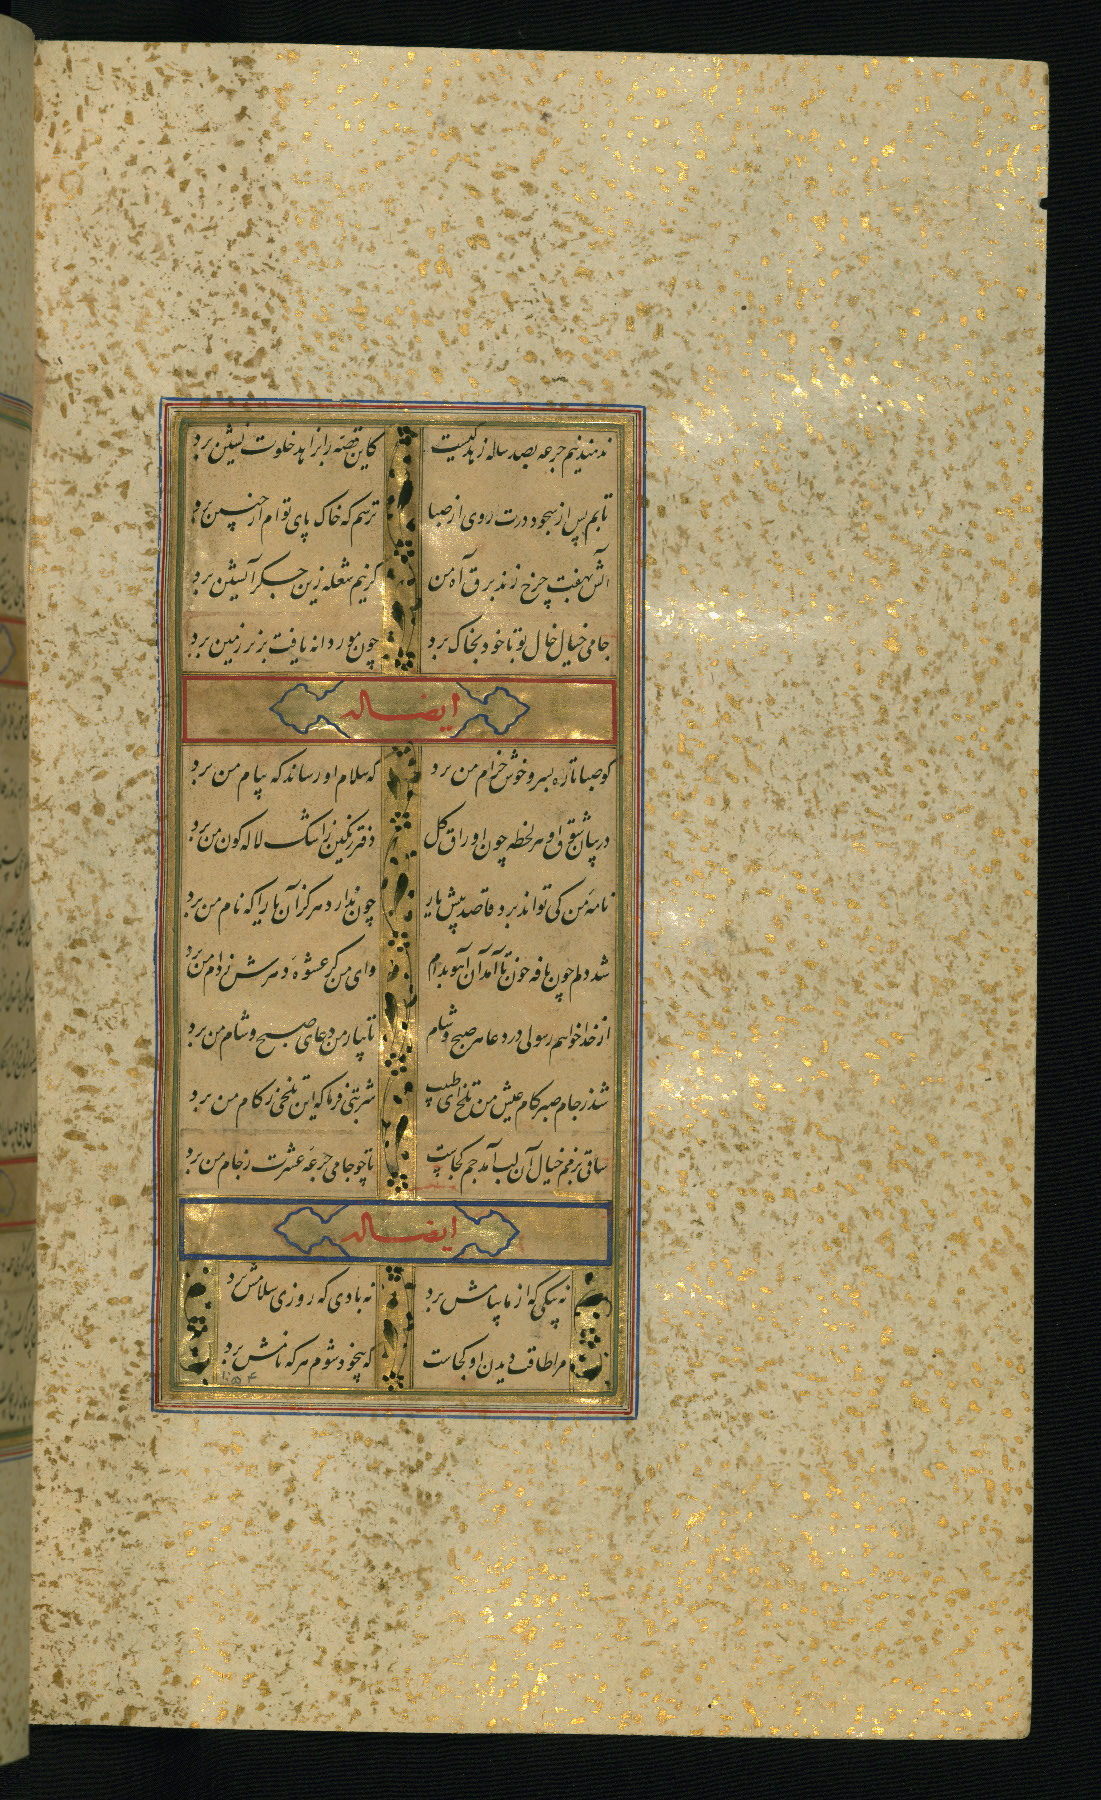 ندهند نیم جرعه بصد ساله زهد کیست کاین قصه را بزاهد خلوت نشین برد
تابم پس از سجود درت روی از صبا ترسم که خاک پای توام از جبین برد
آتش بهفت چرخ زند برق آه من گر نیم شعله زین جگر آتشین برد
جامی خیال خال تو با خود بخاک برد چون مور دانه یافت بزیر زمین برد
ایضاله
کو صبا تا ره بسرو خوش خرام من برد که سلام او رساند که پیام من برد
در بیان شوق او هر لحظه چون اوراق گل دفتر رنگین ز اشک لاله کون من برد
نامه من کی تواند برد قاصد پیش یار چون ندارد هرگز آن یارا که نام من برد
شد دلم چون نافه خون تا آمد آن آهو بدام وای من کر عشوه دهرش ز دام من برد
از خدا خواهم رسولی در دعا هر صبح و شام تا بیار من دعای صبح و شام من برد
شد ز جام صبر کام عیش من تلخ ای طبیب شربتی فرما که این تلخی ز کام من برد
ساقی بزمم خیال آن لب آمد جم کجاست تا چو جامی جرعه عشرت ز جام من برد
ایضاله
نه پیکی که از ما پیامش برد نه بادی که روزی سلامش برد
مرا طاقت دیدن او کجاست که بیخود شوم هر که نامش برد